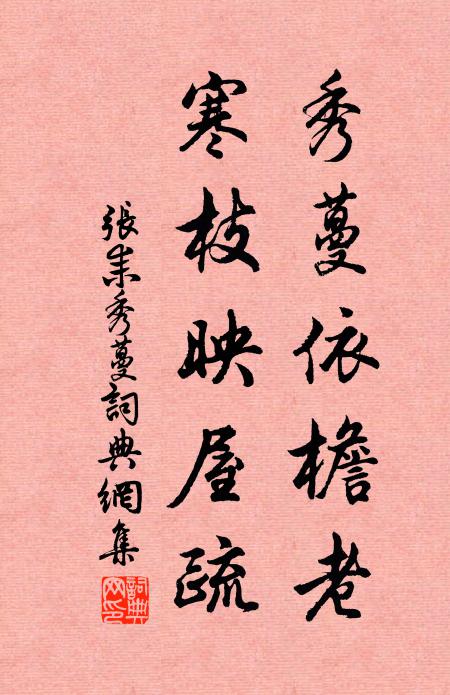 秀蔓依檐老
寒枝映屋疏
張耒秀蔓詞典網集
詞典网印